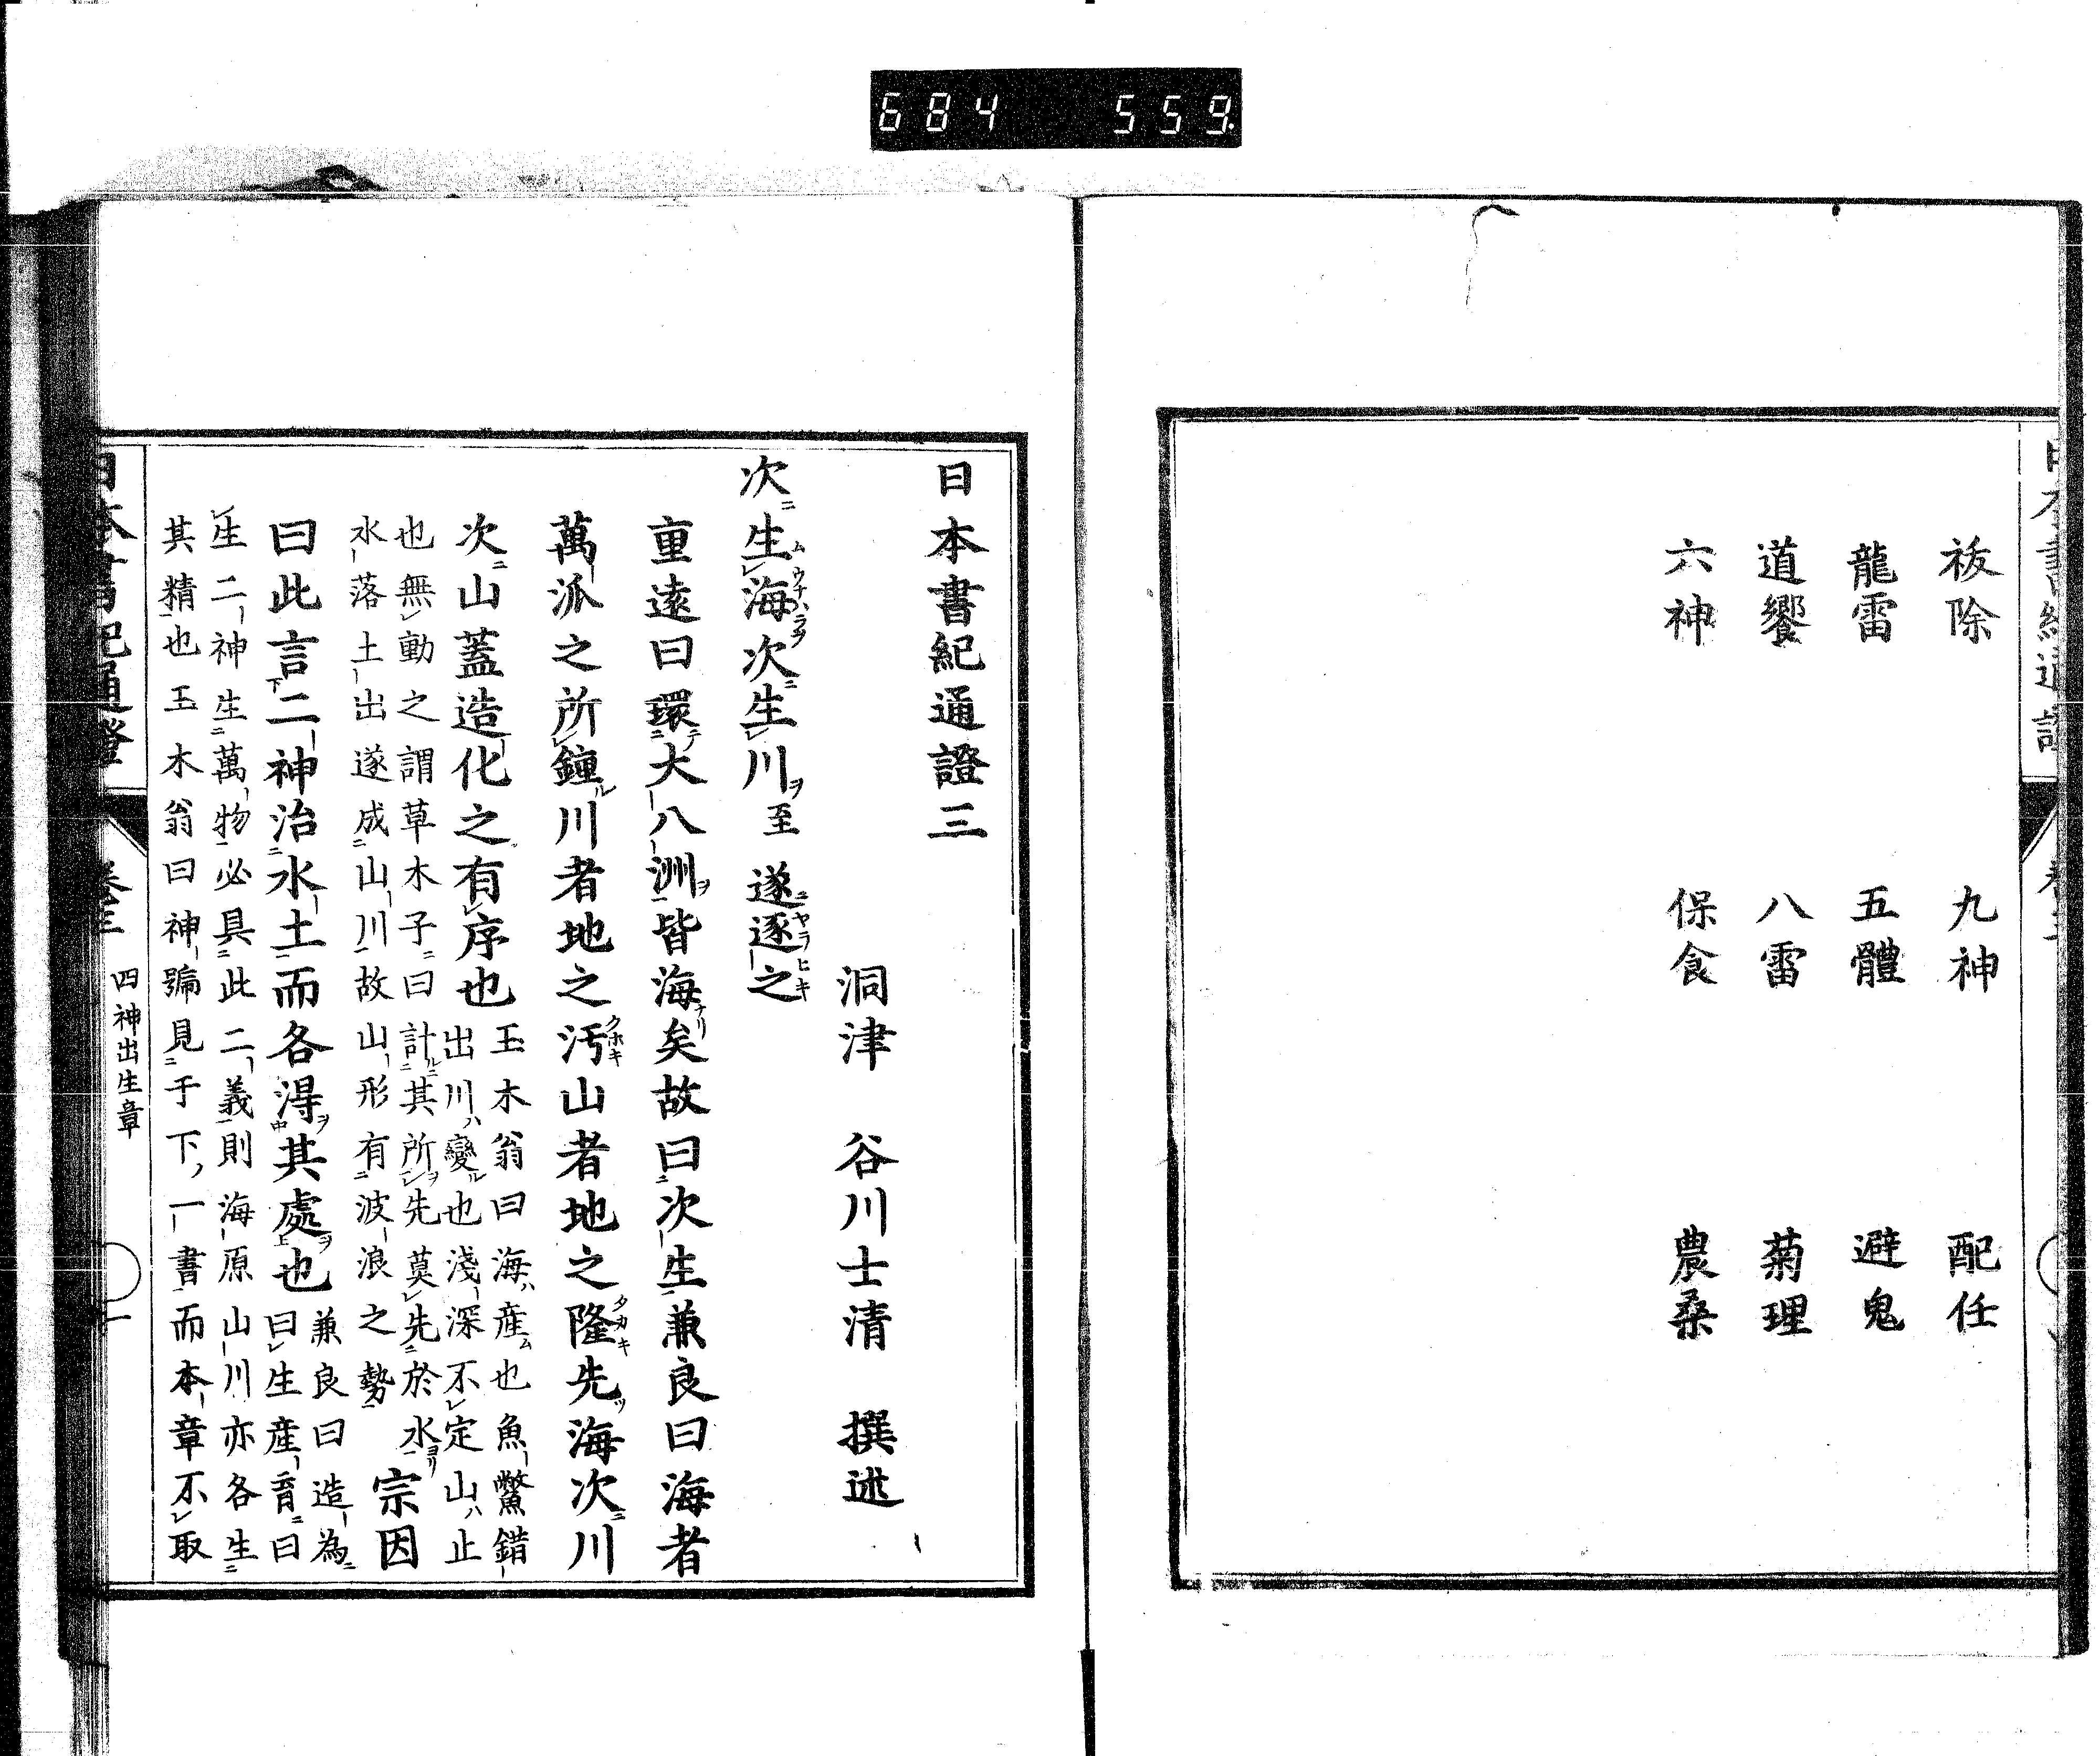 684 559
祓除 九神 配任
龍雷 五體 避鬼
道饗 八雷 菊理
六神 保食 農桑
日本書紀通證三
洞津 谷川士清 撰述
次生海次生川至遂逐之
重遠曰環大八洲皆海矣故曰次生兼良曰海者
萬派之所鐘川者地之汚山者地之隆先海次川
次山蓋造化之有序也
玉木翁曰海産也魚鼈錯
出川變也淺深不定山止
也無動之謂草木子曰計其所先莫先於水
水落土出遂成山川故山形有波浪之勢
宗因
曰此言二神治水土而各得其處也
兼良曰造為
曰生産育曰
生二神生萬物必具此二義則海原山川亦各生
其精也玉木翁曰神號見于下一書而本章不取
日本書紀通證 卷三 四神出生章 一